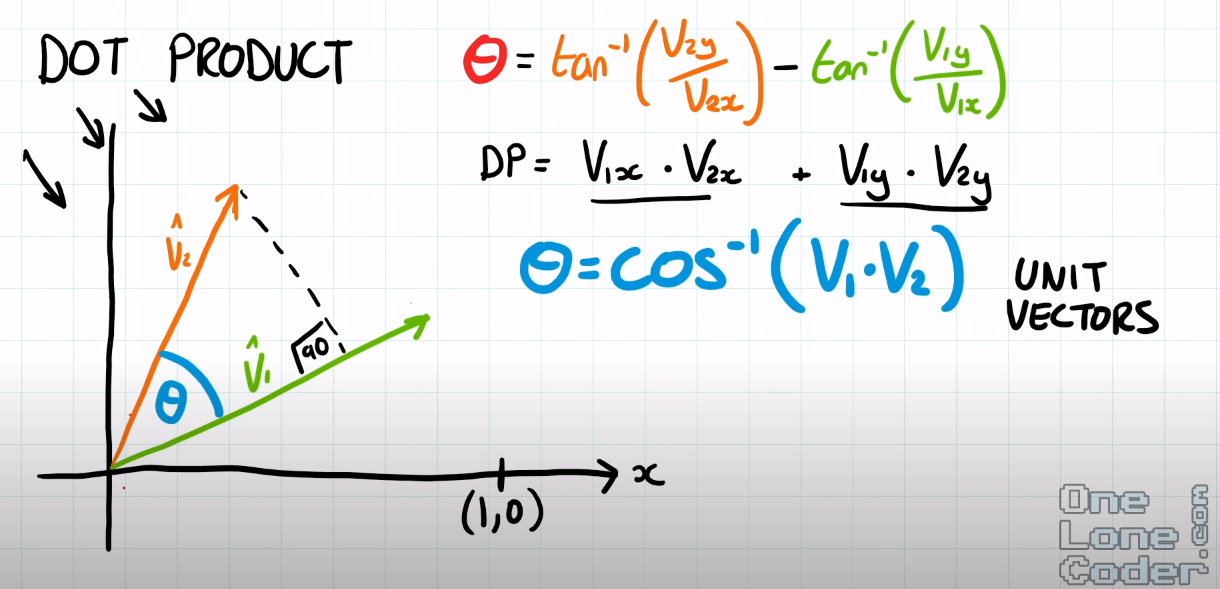 DOT PRODUCT
θ = tan⁻¹(V2y/V2x) − tan⁻¹(V1y/V1x)
DP = V1x · V2x + V1y · V2y
θ = cos⁻¹(V1 · V2)
UNIT
VECTORS
V̂2
V̂1
90
θ
x
(1,0)
One
Lone
Coder
.com